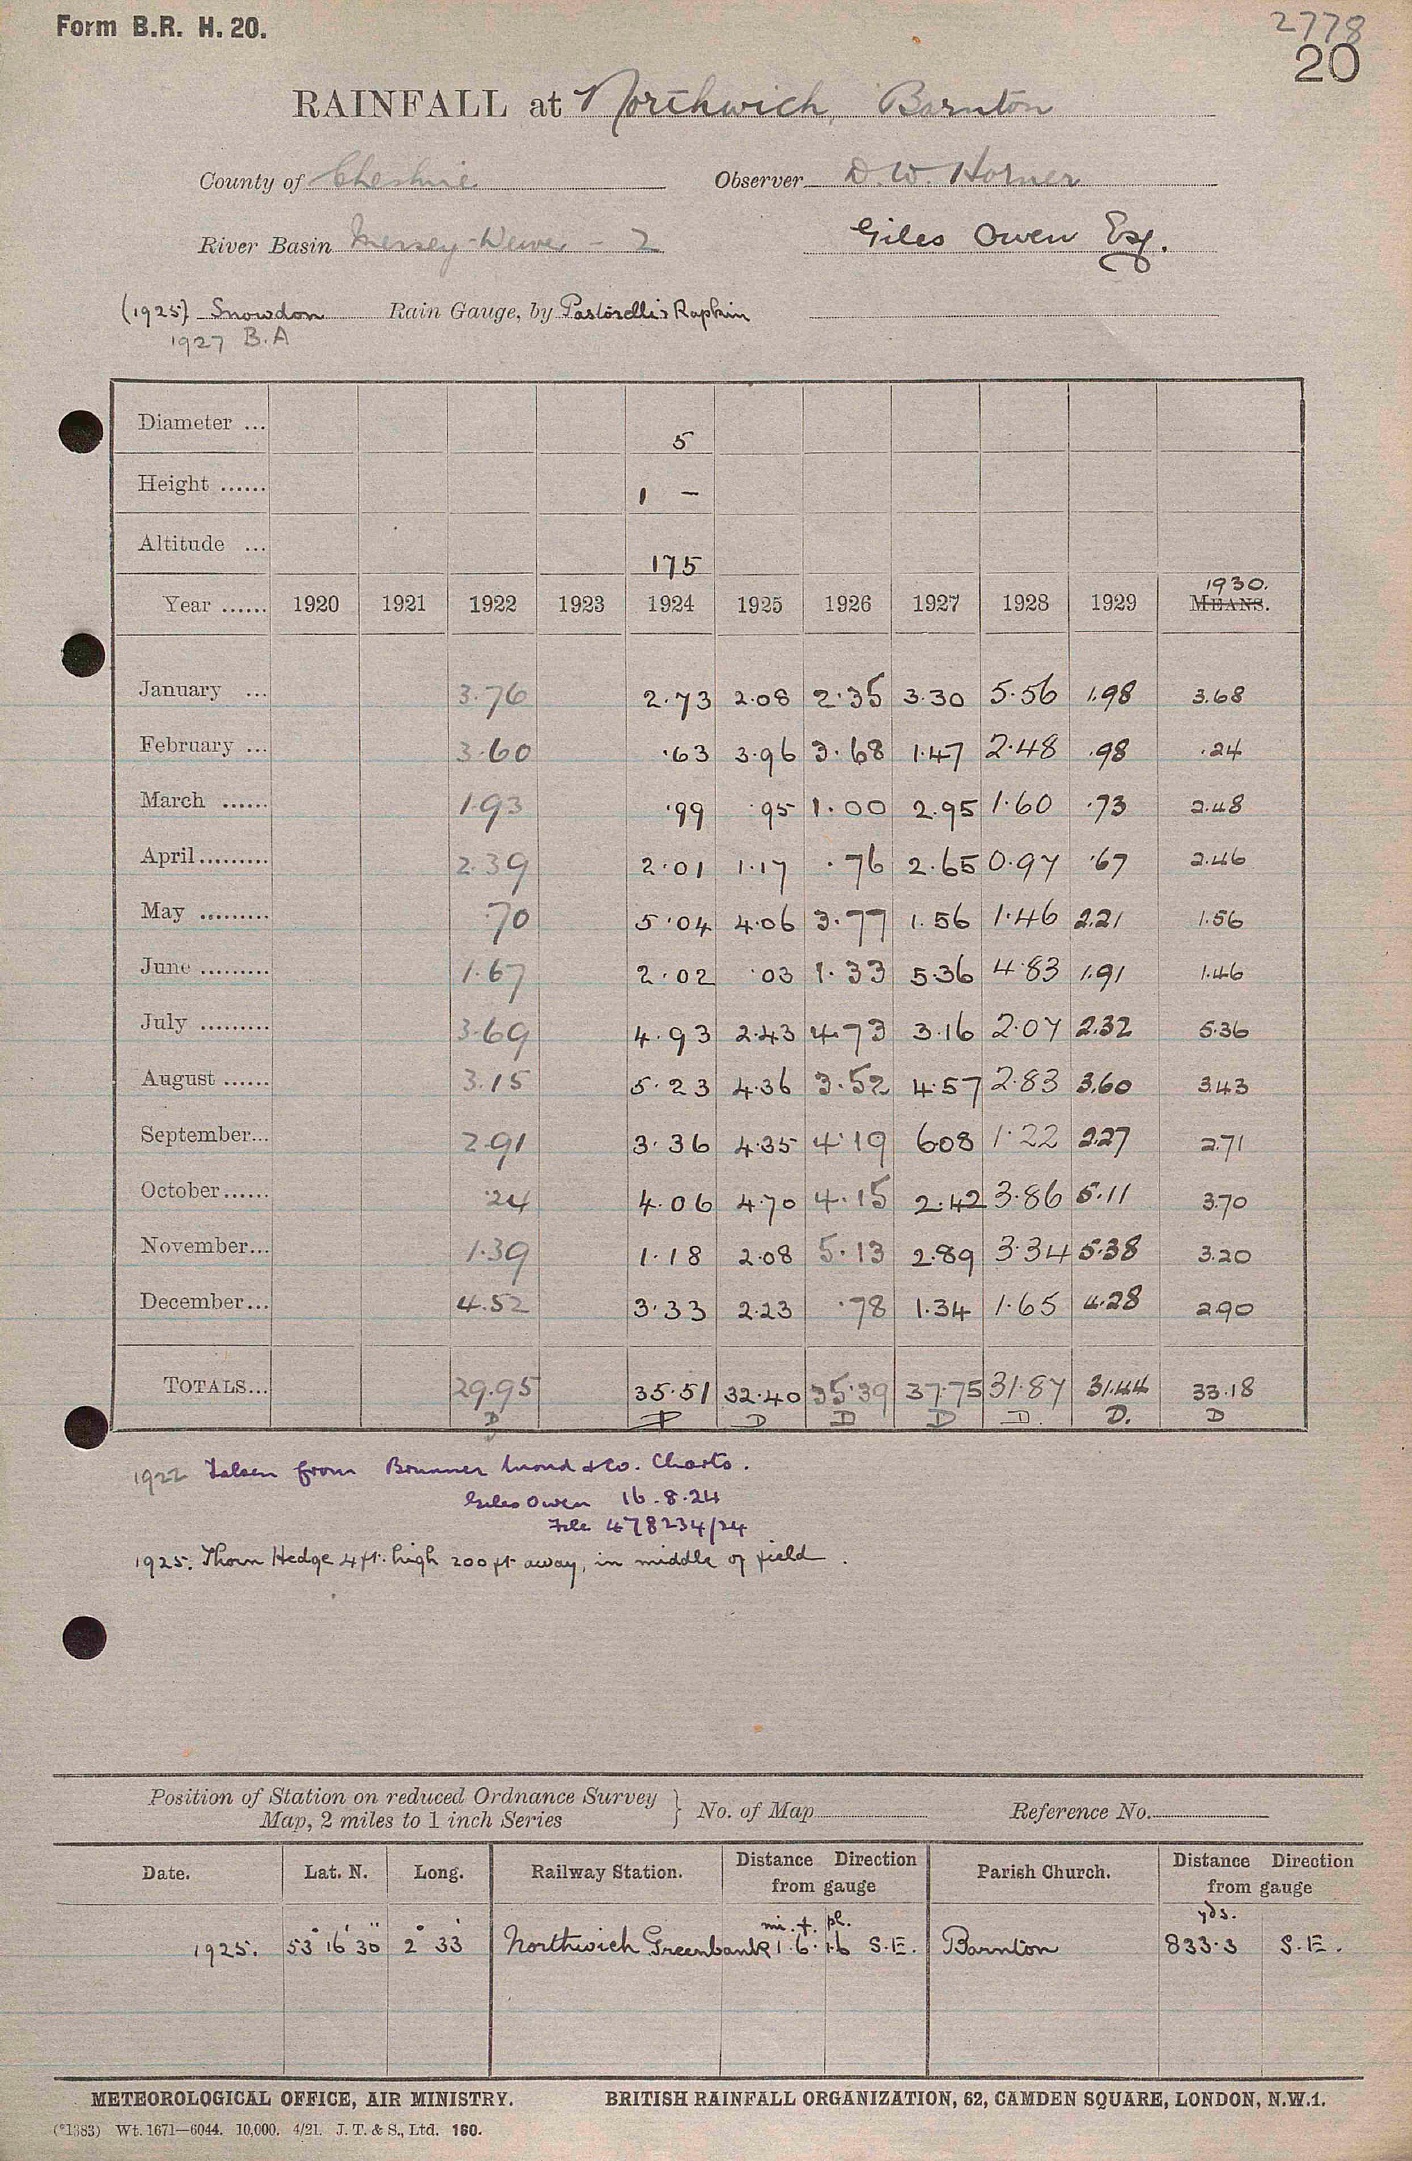 Form B.R. H. 20.
2778
20
RAINFALL at Northwich, Barnton
County of Cheshire Observer D. W. Horner
River Basin Mersey-Weaver - 2 Giles Owen Esq.
(1925) Snowdon Rain Gauge, by Pastorelli & Rapkin
1927 B.A
Diameter ... 5
Height ...... 1 –
Altitude ... 175
1930.
Year ...... 1920 1921 1922 1923 1924 1925 1926 1927 1928 1929 MEANS.
January ... 3.76 2.73 2.08 2.35 3.30 5.56 1.98 3.68
February ... 3.60 .63 3.96 3.68 1.47 2.48 .98 .24
March ...... 1.93 .99 .95 1.00 2.95 1.60 .73 2.48
April ......... 2.39 2.01 1.17 .76 2.65 0.97 .67 2.46
May ......... .70 5.04 4.06 3.77 1.56 1.46 2.21 1.56
June ......... 1.67 2.02 .03 1.33 5.36 4.83 1.91 1.46
July ......... 3.69 4.93 2.43 4.73 3.16 2.07 2.32 5.36
August ...... 3.15 5.23 4.36 3.52 4.57 2.83 3.60 3.43
September... 2.91 3.36 4.35 4.19 6.08 1.22 2.27 2.71
October...... .24 4.06 4.70 4.15 2.42 3.86 5.11 3.70
November... 1.39 1.18 2.08 5.13 2.89 3.34 5.38 3.20
December... 4.52 3.33 2.23 .78 1.34 1.65 4.28 2.90
TOTALS... 29.95 35.51 32.40 35.39 37.75 31.87 31.44 33.18
D D D D D D. D. D
1922 Taken from Brunner Mond & Co. Charts.
Giles Owen 16.8.24
File 478234/24
1925. Thorn Hedge 4 ft. high 200 ft away, in middle of field.
Position of Station on reduced Ordnance Survey
Map, 2 miles to 1 inch Series } No. of Map Reference No.
Date. Lat. N. Long. Railway Station. Distance Direction from gauge Parish Church. Distance Direction from gauge
mi. f. pl. yds.
1925. 53° 16' 30" 2° 33' Northwich Greenbank 1.6.16 S.E. Barnton 833.3 S.E.
METEOROLOGICAL OFFICE, AIR MINISTRY. BRITISH RAINFALL ORGANIZATION, 62, CAMDEN SQUARE, LONDON, N.W.1.
(*1383) Wt. 1671—6044. 10,000. 4/21. J. T. & S., Ltd. 160.